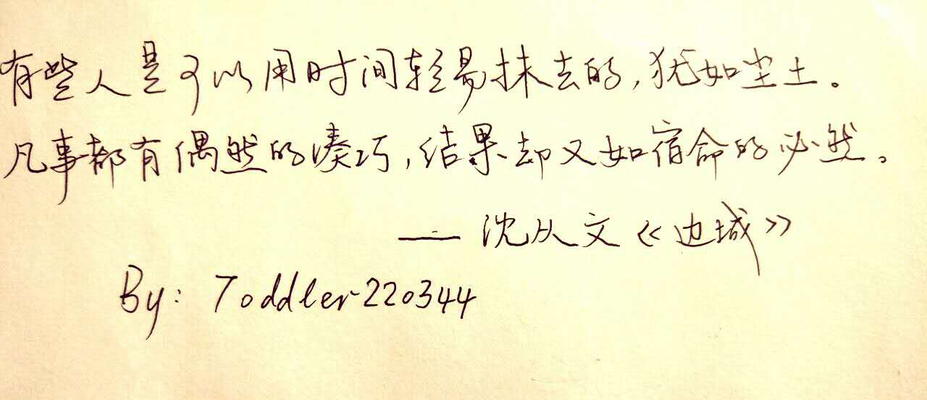 有些人是可以用时间轻易抹去的，犹如尘土。
凡事都有偶然的凑巧，结果却又如宿命的必然。
—— 沈从文《边城》
By: Toddler220344